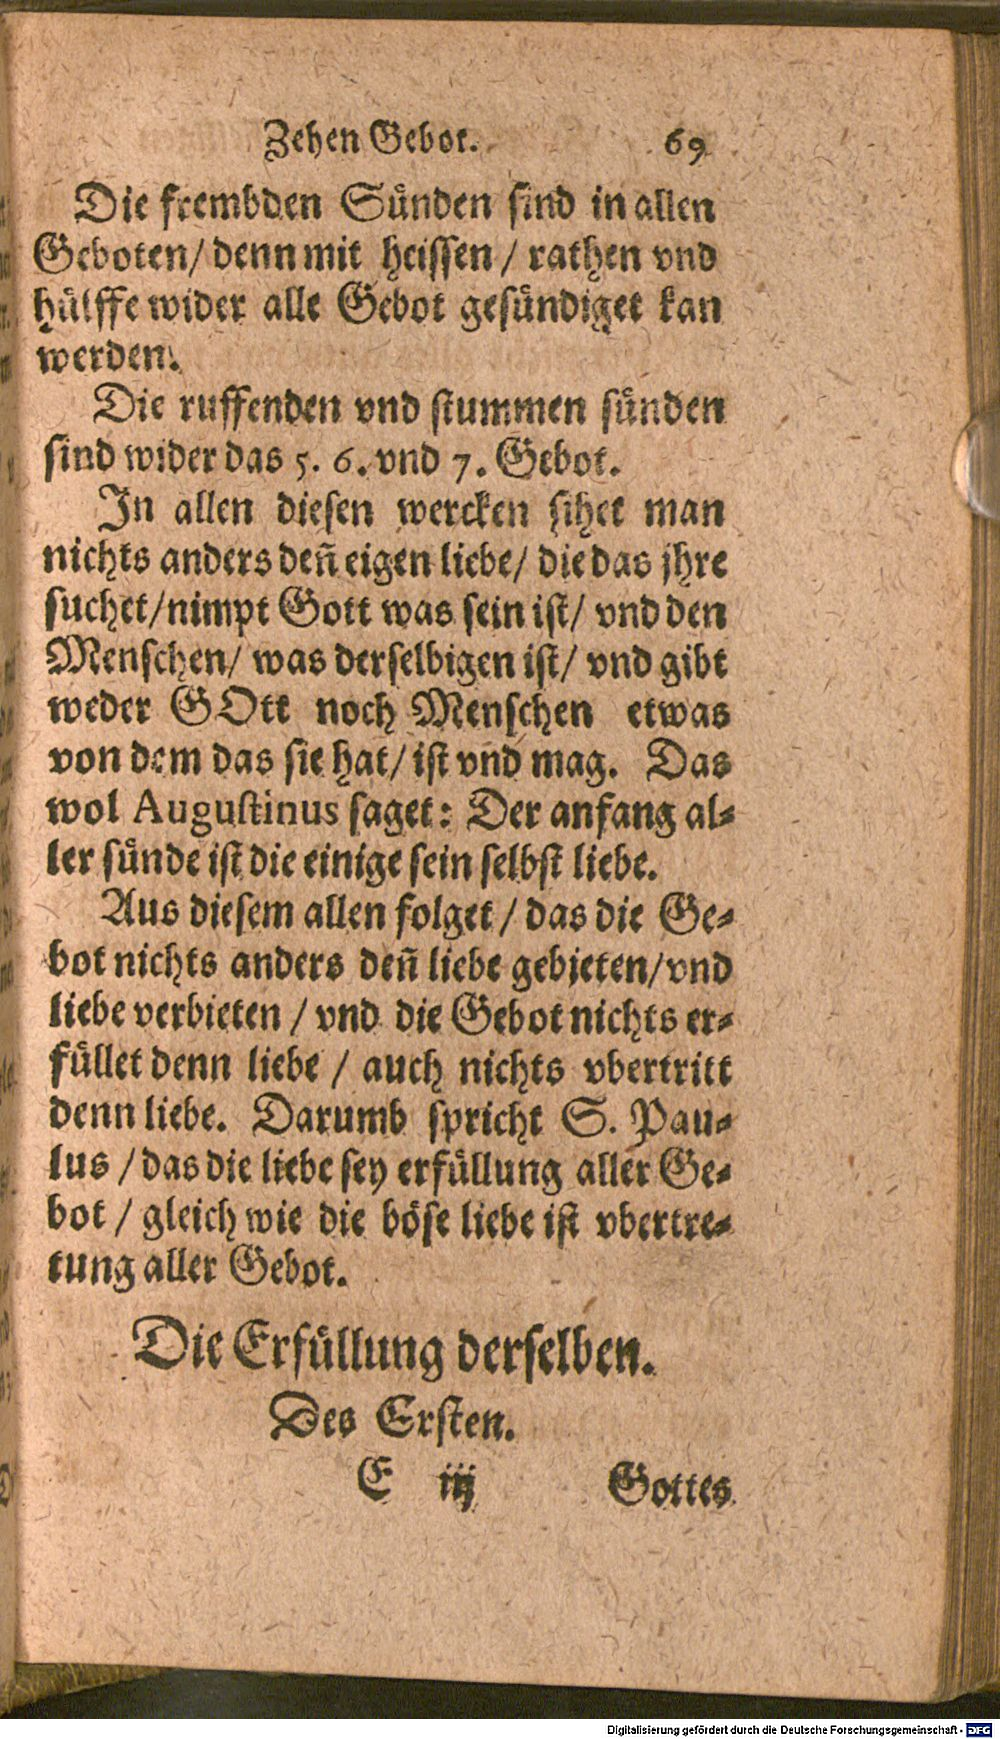 Zehen Gebot. 69
Die frembden Sünden sind in allen
Geboten/ denn mit heissen / rathen vnd
hülffe wider alle Gebot gesündiget kan
werden.
Die ruffenden vnd stummen sünden
sind wider das 5. 6. vnd 7. Gebot.
In allen diesen wercken sihet man
nichts anders deñ eigen liebe/ die das jhre
suchet/nimpt Gott was sein ist/ vnd den
Menschen/ was derselbigen ist/ vnd gibt
weder GOtt noch Menschen etwas
von dem das sie hat/ ist vnd mag. Das
wol Augustinus saget: Der anfang al-
ler sünde ist die einige sein selbst liebe.
Aus diesem allen folget / das die Ge-
bot nichts anders deñ liebe gebieten/vnd
liebe verbieten / vnd die Gebot nichts er-
füllet denn liebe / auch nichts vbertritt
denn liebe. Darumb spricht S. Pau-
lus / das die liebe sey erfüllung aller Ge-
bot / gleich wie die böse liebe ist vbertre-
tung aller Gebot.
Die Erfüllung derselben.
Des Ersten.
E iij Gottes
Digitalisierung gefördert durch die Deutsche Forschungsgemeinschaft - DFG